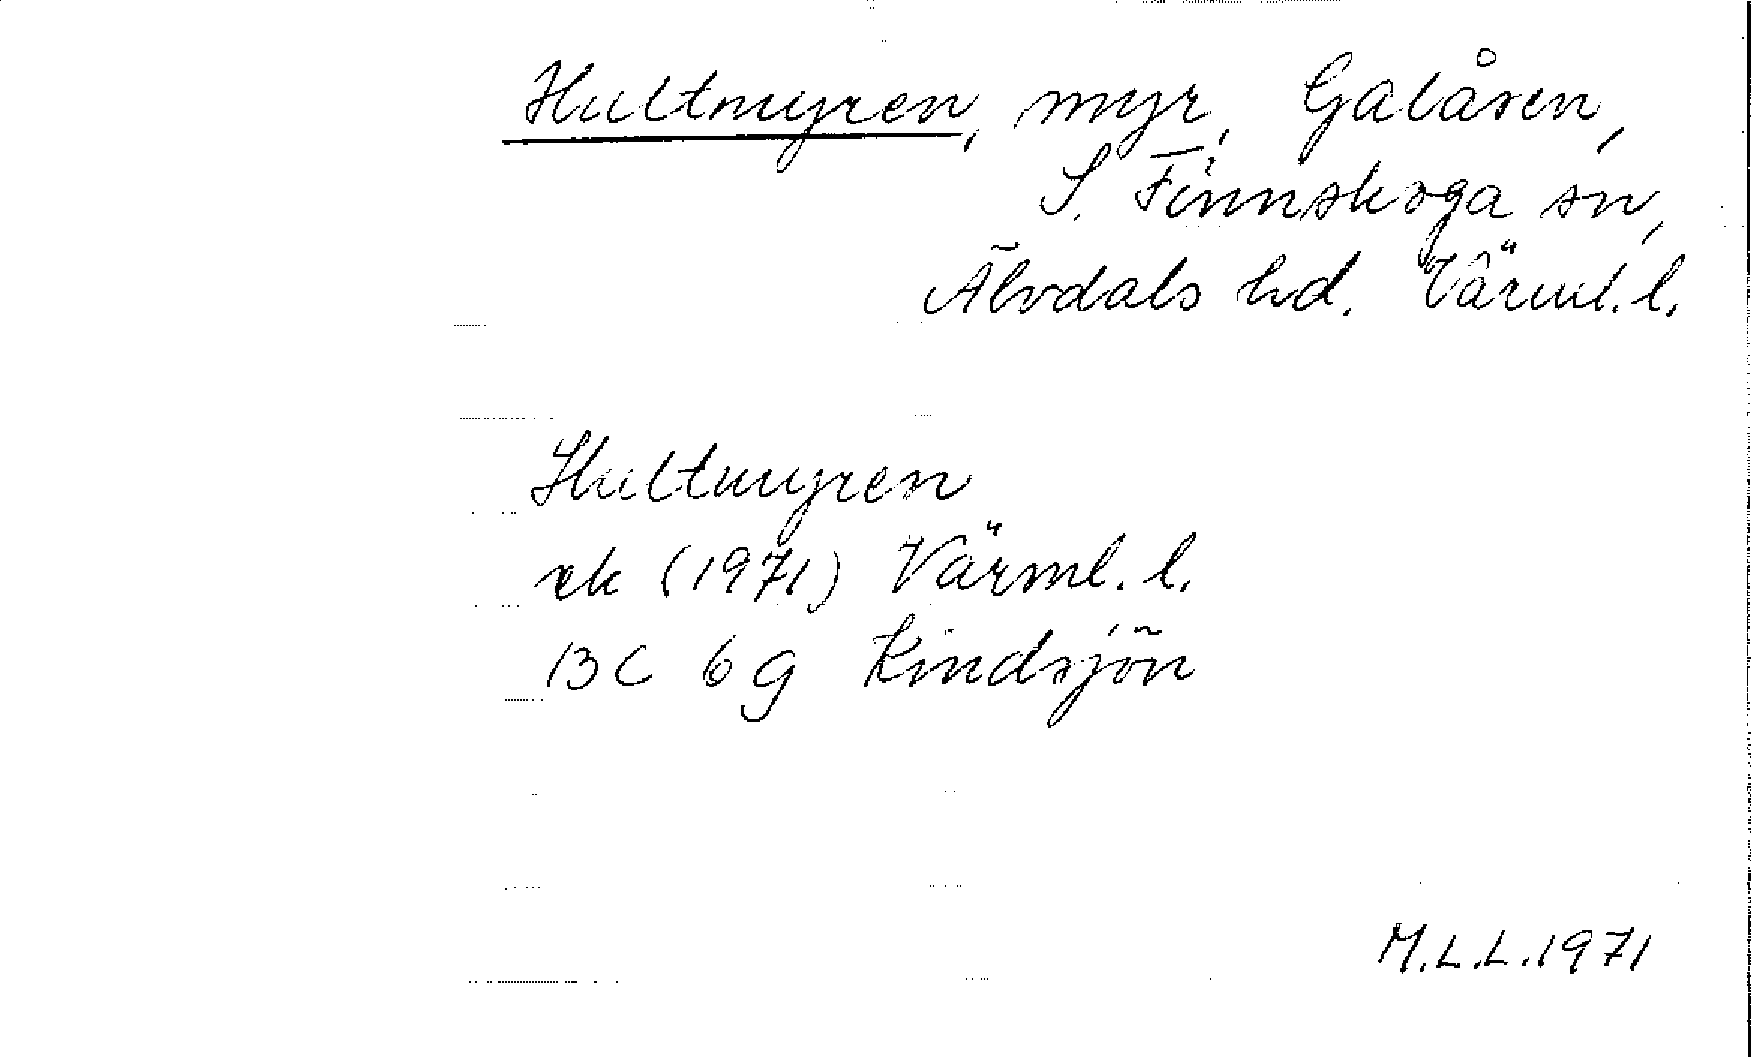 Hultmyren, myr, Galåsen,
S. Finnskoga sn,
Älvdals hd. Värml. l.
Hultmyren
ek (1971) Värml. l.
13 C 6 g Kindsjön
M.L.L. 1971